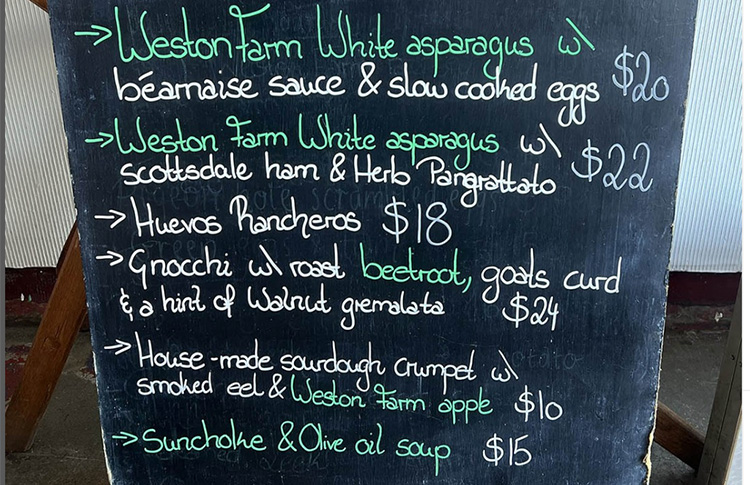 → Weston Farm White asparagus w\
béarnaise sauce & slow cooked eggs $20
→ Weston Farm White asparagus w\
scottsdale ham & Herb Pangrattato $22
→ Huevos Rancheros $18
→ Gnocchi w\ roast beetroot, goats curd
& a hint of Walnut gremalata $24
→ House-made sourdough crumpet w\
smoked eel & Weston Farm apple $10
→ Sunchoke & Olive oil soup $15